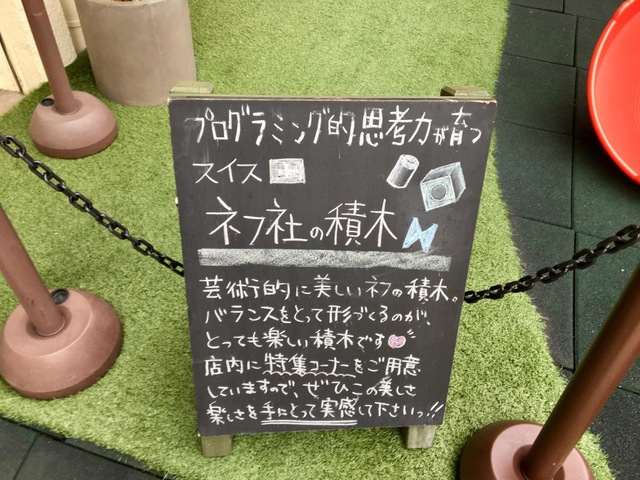 プログラミング的思考力が育つ
スイス
ネフ社の積木
芸術的に美しいネフの積木。
バランスをとって形づくるのが、
とっても楽しい積木です
店内に特集コーナーをご用意
していますので、ぜひこの美しさ
楽しさを手にとって実感して下さいっ!!